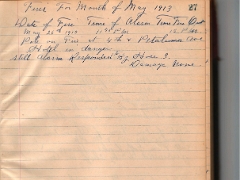 Fires For Month of May 1913
Date of Fire Time of Alarm Time Fire Out
May 26th 1913
Pole on Fire at 4th & Petaluma Ave
Hotel in danger
still Alarm Responded by Hose 3.
Damage None.